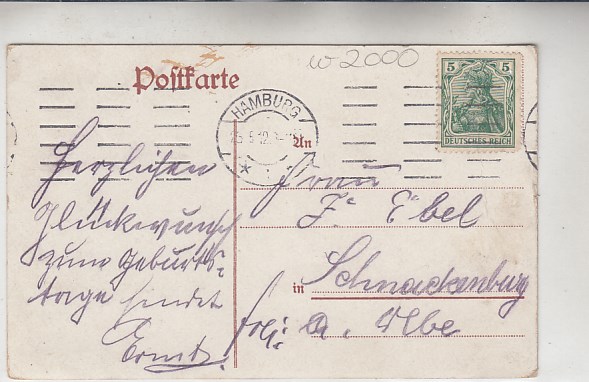 w 2000
Postkarte
5 5
DEUTSCHES REICH
HAMBURG
5.12
An
Herzlichen
Glückwunsch
zum Geburts-
tage sendet
Ernst.
Frau
F. Ebel
in Schnackenburg
a. Elbe